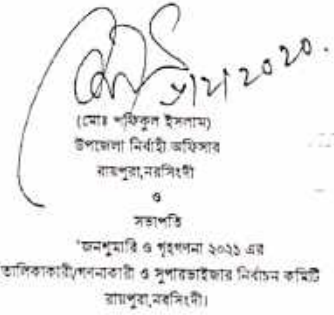 (মোঃ শফিকুল ইসলাম)
উপজেলা নির্বাহী অফিসার
রায়পুরা,নরসিংদী
ও
সভাপতি
"জনশুমারি ও গৃহগণনা ২০২১ এর
তালিকাকারী/গণনাকারী ও সুপারভাইজার নির্বাচন কমিটি
রায়পুরা,নরসিংদী।